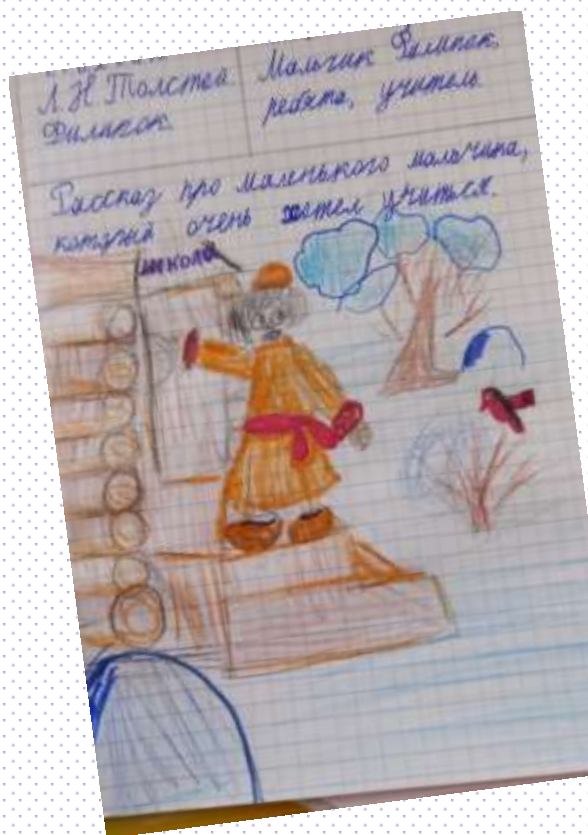 Л.Н.Толстой.
Филипок.
Мальчик Филипок,
ребята, учитель
Рассказ про маленького мальчика,
который очень хотел учиться.
школа